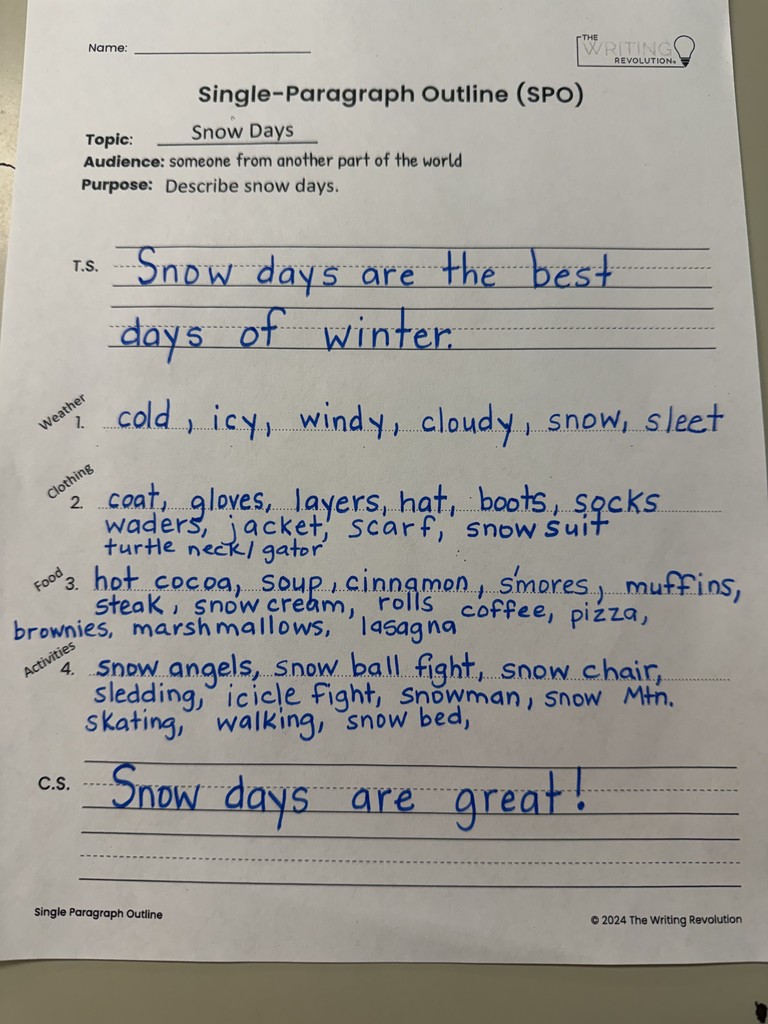 Name:
THE
WRITING
REVOLUTION®
Single-Paragraph Outline (SPO)
Topic: Snow Days
Audience: someone from another part of the world
Purpose: Describe snow days.
T.S. Snow days are the best
days of winter.
Weather
1. cold, icy, windy, cloudy, snow, sleet
Clothing
2. coat, gloves, layers, hat, boots, socks
waders, jacket, scarf, snow suit
turtle neck/gator
Food
3. hot cocoa, soup, cinnamon, s'mores, muffins,
steak, snow cream, rolls coffee, pizza,
brownies, marshmallows, lasagna
Activities
4. snow angels, snow ball fight, snow chair,
sledding, icicle fight, snowman, snow Mtn.
skating, walking, snow bed,
C.S. Snow days are great!
Single Paragraph Outline
© 2024 The Writing Revolution